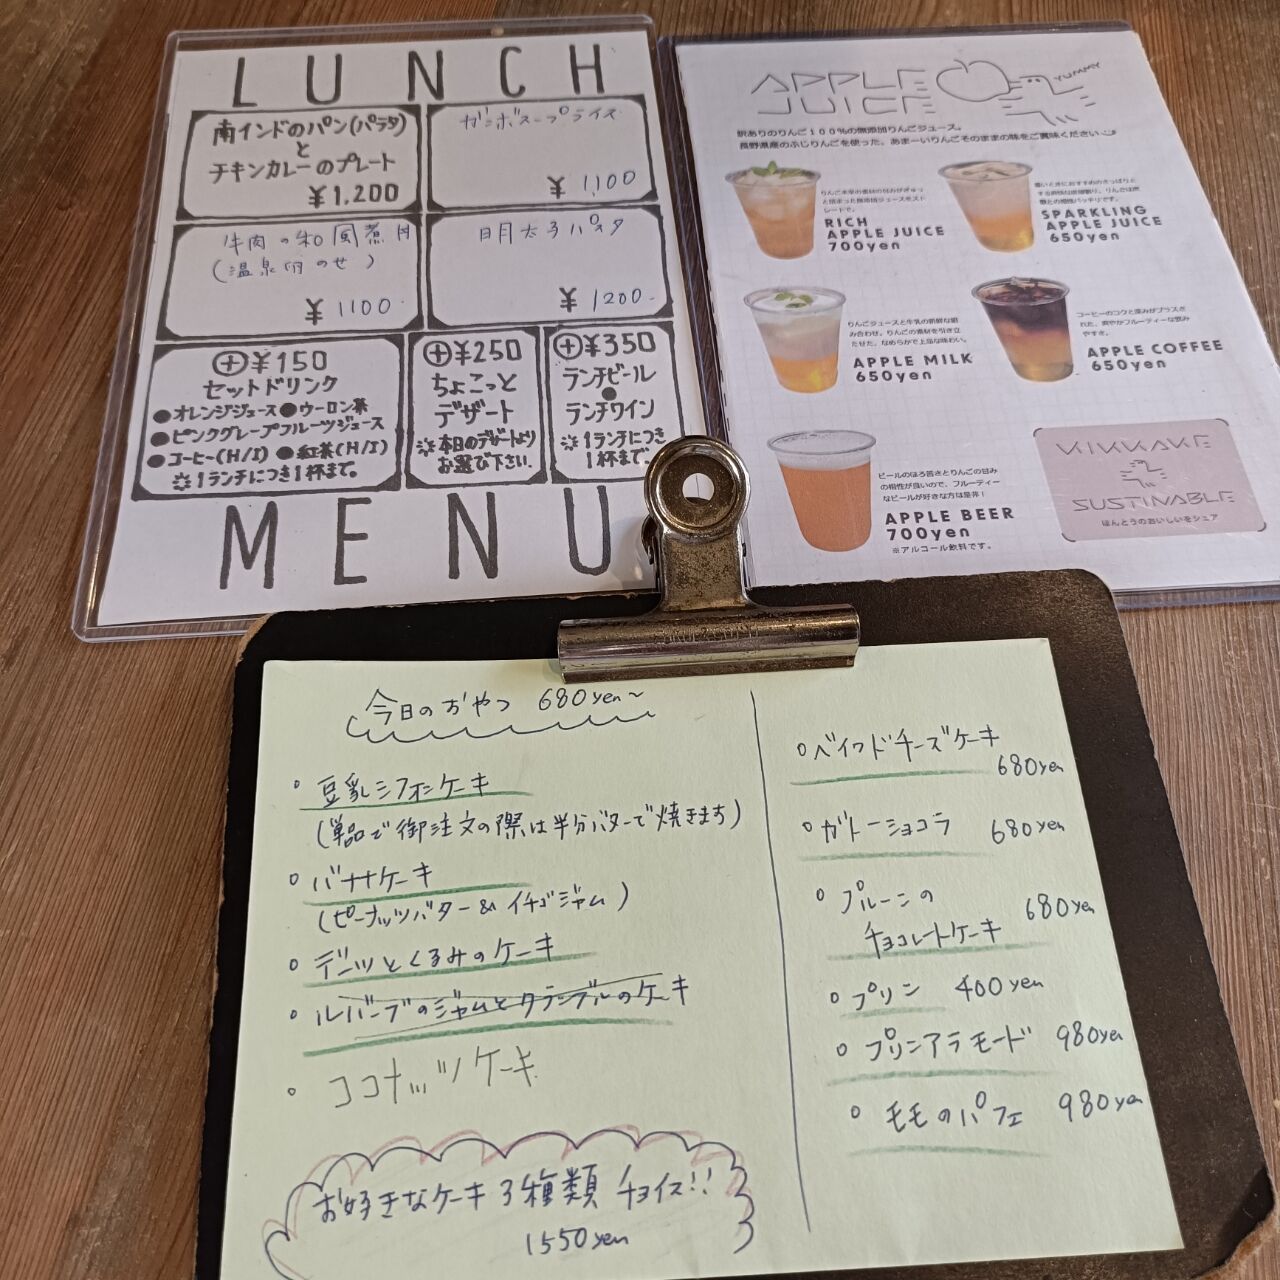 LUNCH
南インドのパン(パラタ)
と
チキンカレーのプレート
¥1,200
ガンボスープライス
¥1,100
牛肉の和風煮丼
(温泉卵のせ)
¥1100.
明太子パスタ
¥1200-
⊕¥150
セットドリンク
●オレンジジュース●ウーロン茶
●ピンクグレープフルーツジュース
●コーヒー(H/I) ●紅茶(H/I)
1ランチにつき1杯まで。
⊕¥250
ちょこっと
デザート
本日のデザートより
お選び下さい。
⊕¥350
ランチビール
●
ランチワイン
1ランチにつき
1杯まで
MENU
APPLE
JUICE
YUMMY
訳ありのりんご100%の無添加りんごジュース。
長野県産のふじりんごを使った、あまーいりんごそのままの味をご賞味ください
RICH
APPLE JUICE
700yen
SPARKLING
APPLE JUICE
650yen
りんごジュースと牛乳の新鮮な組
み合わせ。りんごの素材を引き立
たせた、なめらかで上品な味わい。
APPLE MILK
650yen
コーヒーのコクと深みがプラスさ
れた、爽やかフルーティーな飲み
やすさ。
APPLE COFFEE
650yen
ビールのほろ苦さとりんごの甘み
の相性が良いので、フルーティー
なビールが好きな方は是非!
APPLE BEER
700yen
※アルコール飲料です。
KIKKAKE
SUSTINABLE
ほんとうのおいしいをシェア
今日のおやつ 680yen～
豆乳シフォンケーキ
(単品で御注文の際は半分バターで焼きます)
バナナケーキ
(ピーナッツバター&イチゴジャム)
デーツとくるみのケーキ
ルバーブのジャムとクランブルのケーキ
ココナッツケーキ
お好きなケーキ3種類チョイス!!
1550yen
ベイクドチーズケーキ
680yen
ガトーショコラ 680yen
プルーンの
チョコレートケーキ 680yen
プリン 400yen
プリンアラモード 980yen
モモのパフェ 980yen